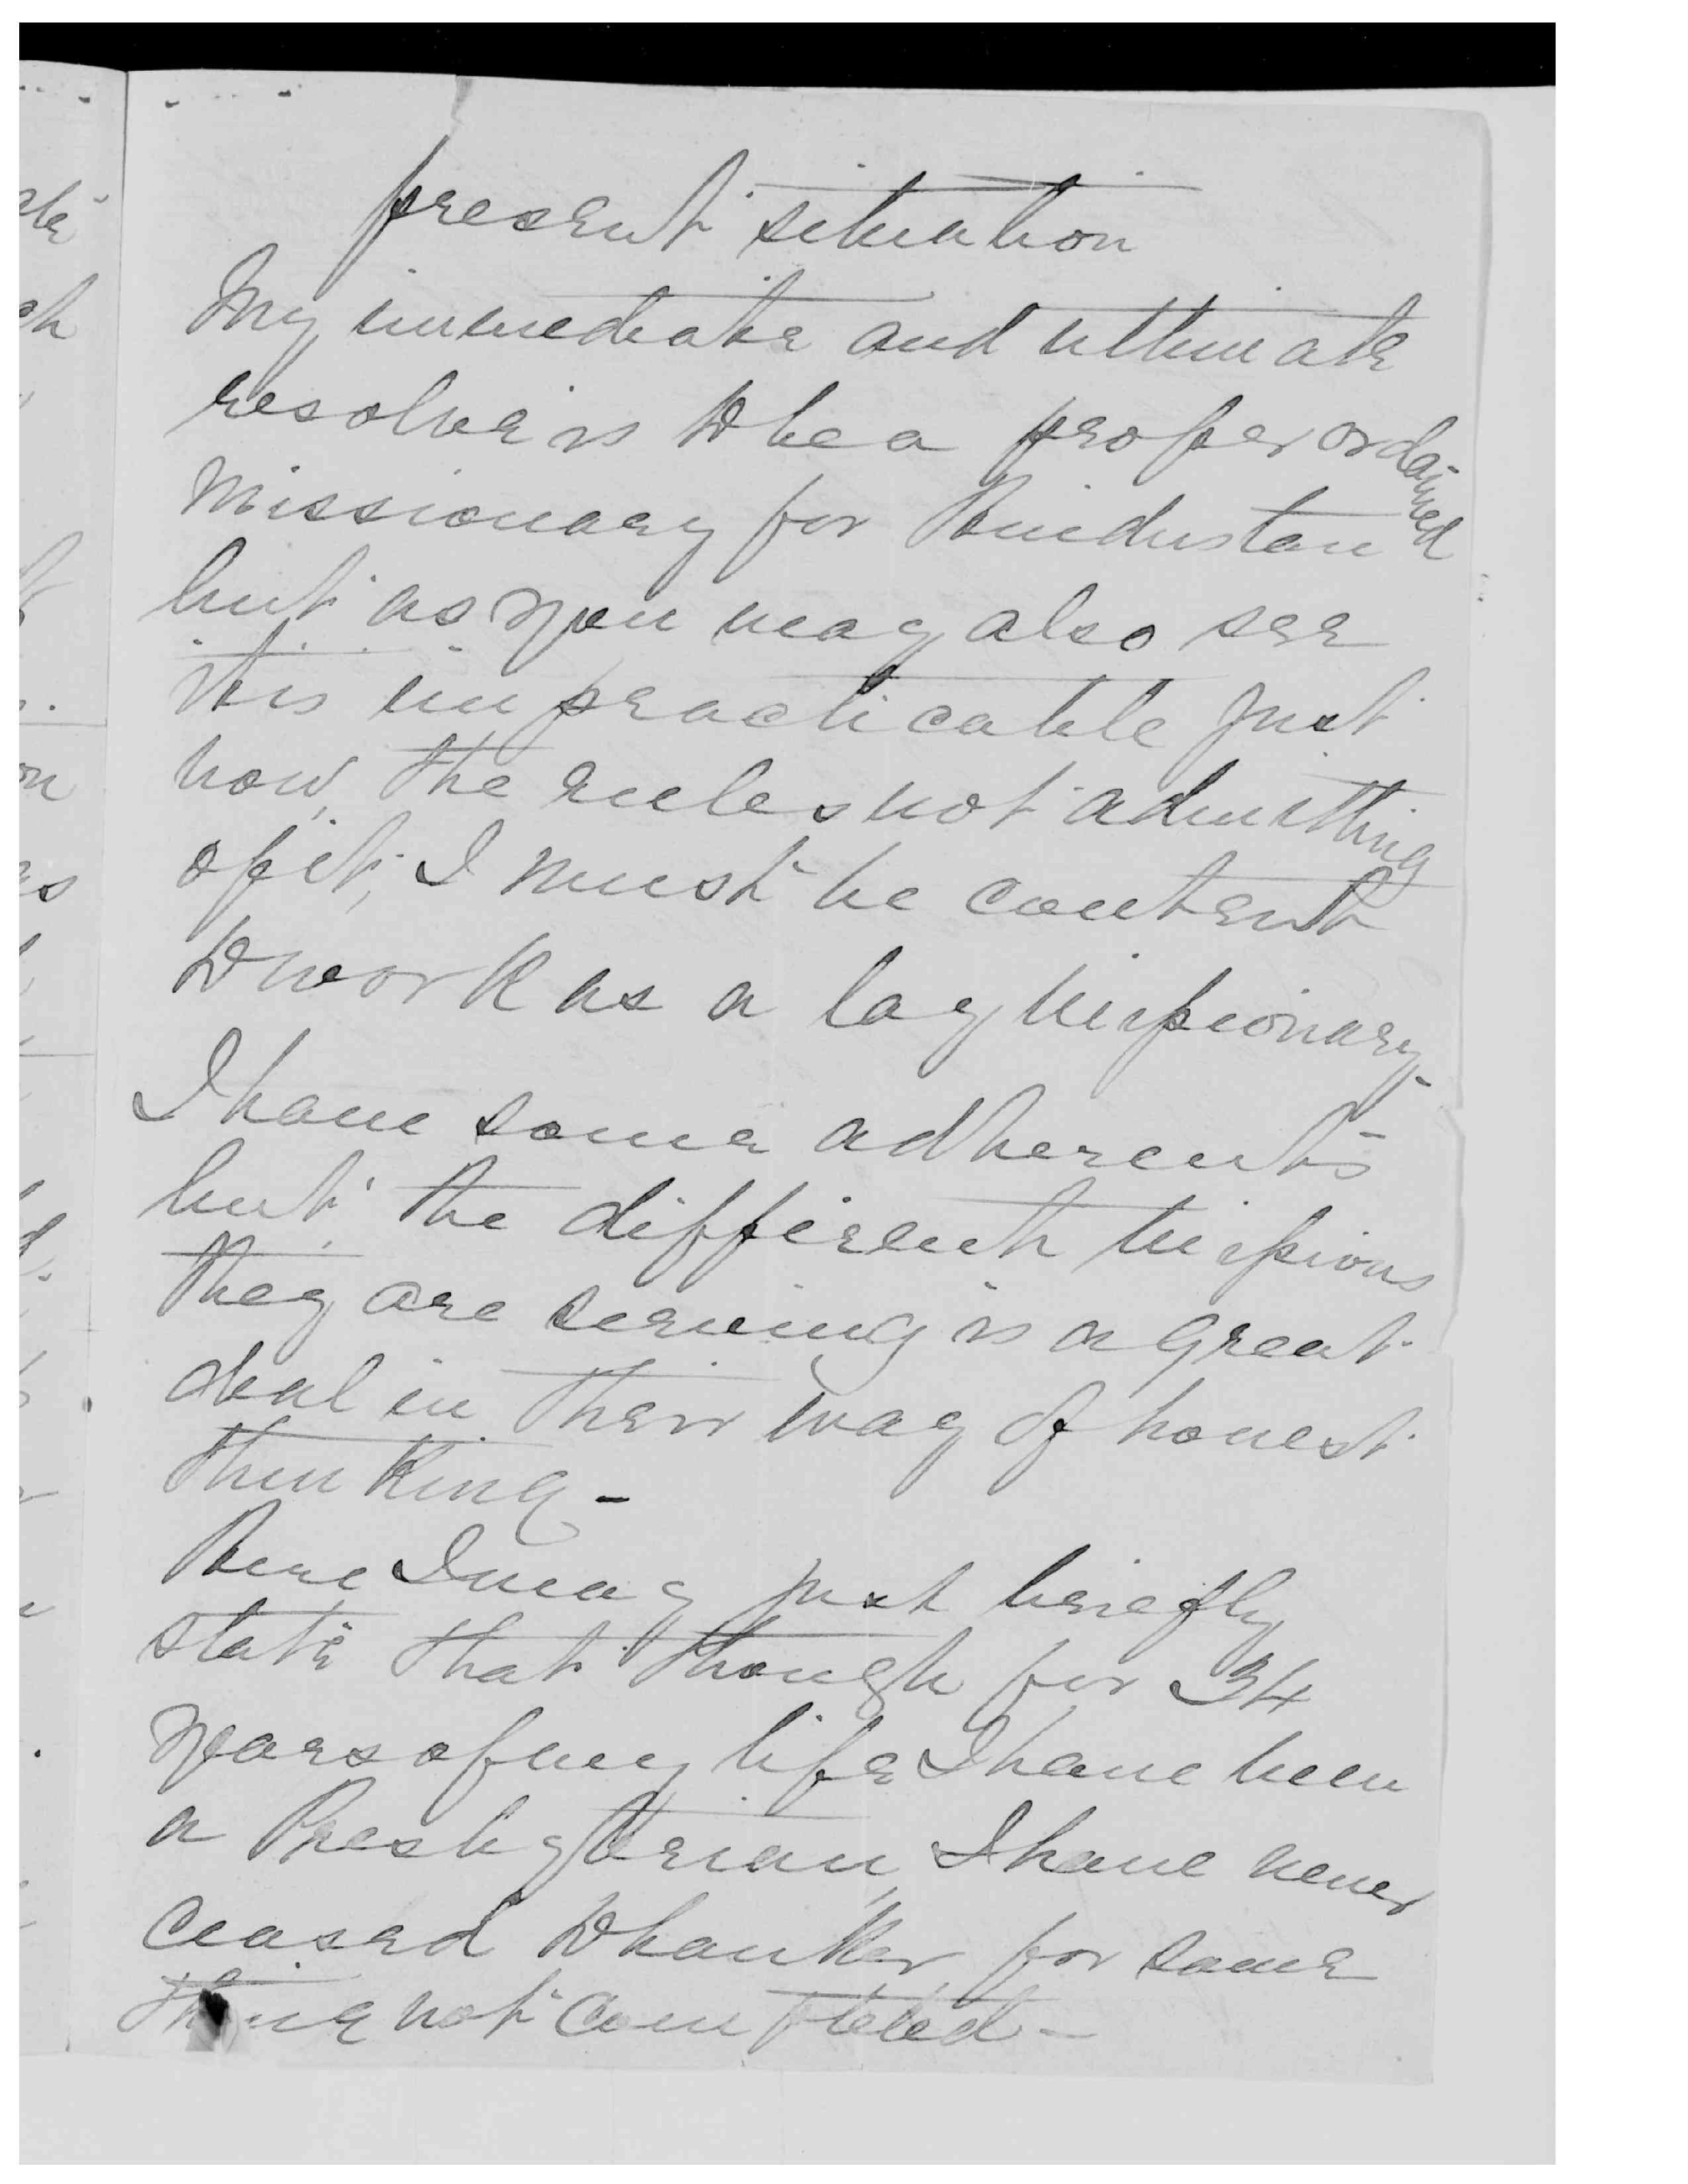 present situation
My immediate and ultimate
resolve is to be a proper ordained
Missionary for Hindustan
but as you may also see
it is impracticable just
now, the rules not admitting
of it, I must be content
to work as a lay missionary.
I have some adherents
but the different missions
they are serving is a great
deal in their way of honest
thinking -
Here I may just briefly
state that though for 34
years of my life I have been
a Presbyterian, I have never
ceased to hanker for some
thing not completed -